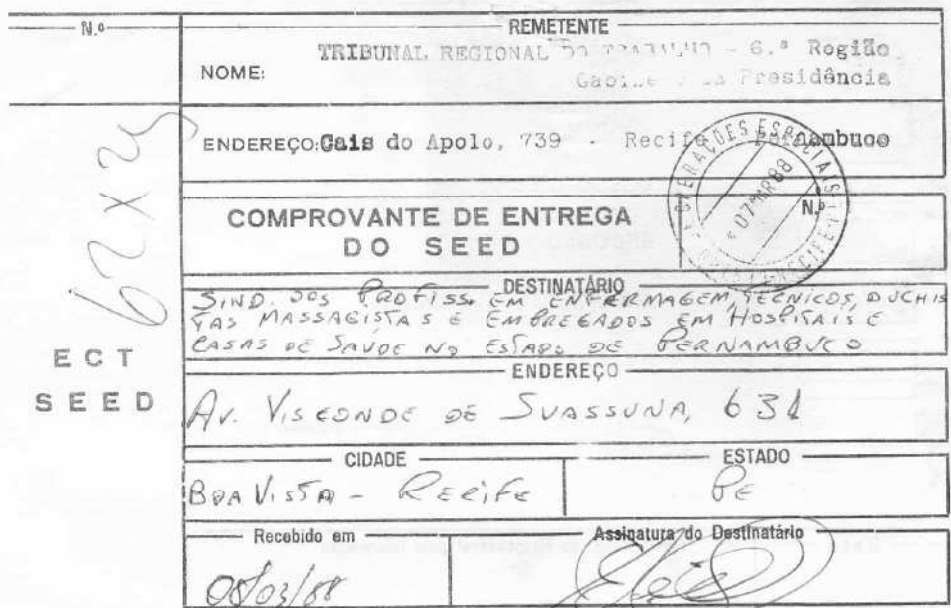 N.º
REMETENTE
NOME: TRIBUNAL REGIONAL DO TRABALHO - 6.ª Região
Presidência
ENDEREÇO: Cais do Apolo, 739 - Recife Pernambuco
OPERAÇÕES ESPECIAIS
07 MAR 88
62 X 25
COMPROVANTE DE ENTREGA
DO SEED
N.º
DESTINATÁRIO
SIND. DOS PROFISS. EM ENFERMAGEM, TÉCNICOS, DUCHIS
TAS MASSAGISTAS E EMPREGADOS EM HOSPITAIS E
CASAS DE SAÚDE NO ESTADO DE PERNAMBUCO
ECT
SEED
ENDEREÇO
AV. VISCONDE DE SUASSUNA, 631
CIDADE
BOA VISTA - RECIFE
ESTADO
PE
Recebido em
08/03/88
Assinatura do Destinatário